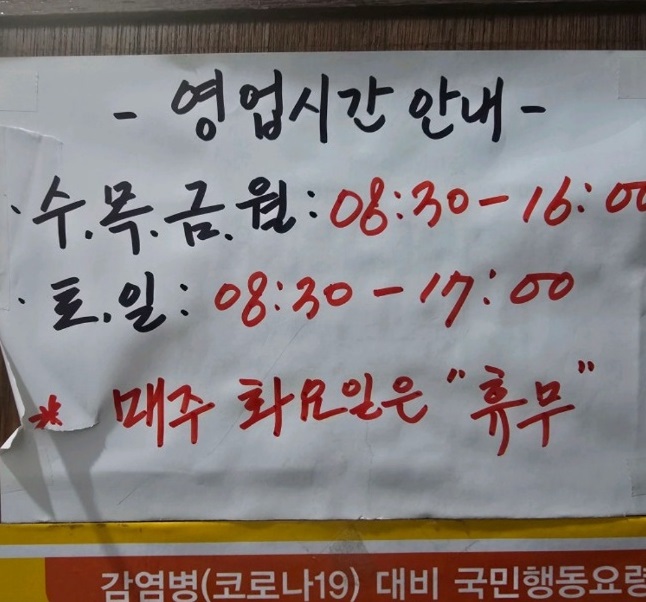 - 영업시간 안내 -
· 수.목.금.월 : 08:30 - 16:00
· 토.일 : 08:30 - 17:00
* 매주 화요일은 "휴무"
감염병(코로나19) 대비 국민행동요령